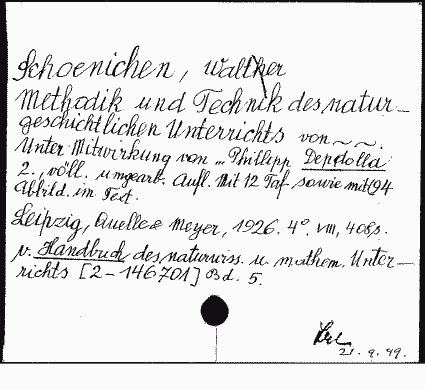 Schoenichen, Walther
Methodik und Technik des natur-
geschichtlichen Unterrichts von ~ ~.
Unter Mitwirkung von ... Philipp Depdolla
2., völl. umgearb. Aufl. Mit 12 Taf. sowie mit 94
Abbild. im Text.
Leipzig, Quelle & Meyer, 1926. 4° VIII, 408 s.
v. Handbuch des naturwiss. u. mathem. Unter-
richts [2-146701] Bd. 5.
21. 9. 49.